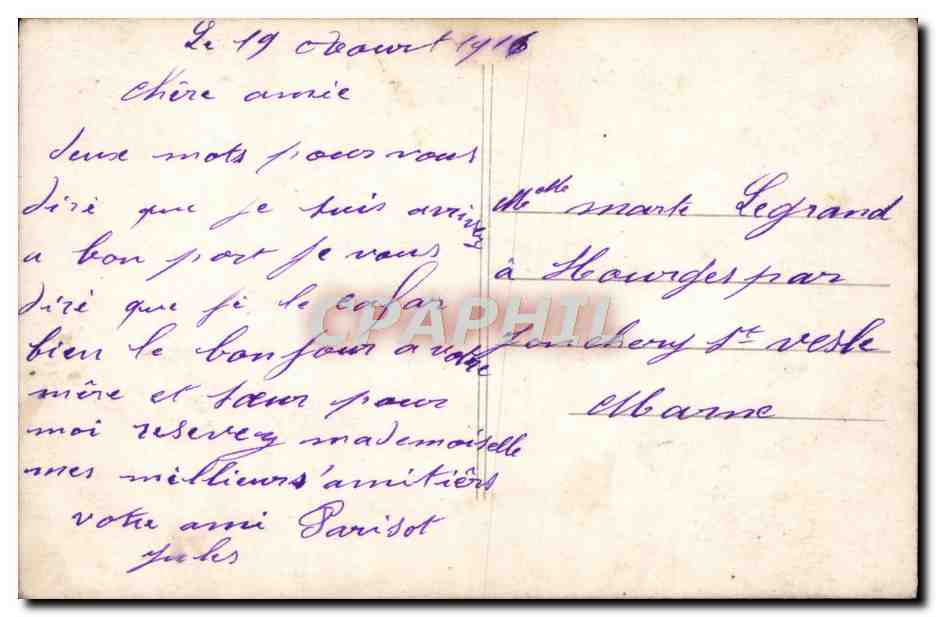 Le 19 Aout 1916
Chère amie
deux mots pour vous
diré que je suis arrivey
a bon port je vous
diré que jé le cafar
bien le bonjour a votre
mère et sœur pour
moi resevey mademoiselle
mes millieurs amitiérs
votre ami Parisot
Jules
Melle marte Legrand
à Hourges par
Jonchery St vesle
Marne
CPAPHIL